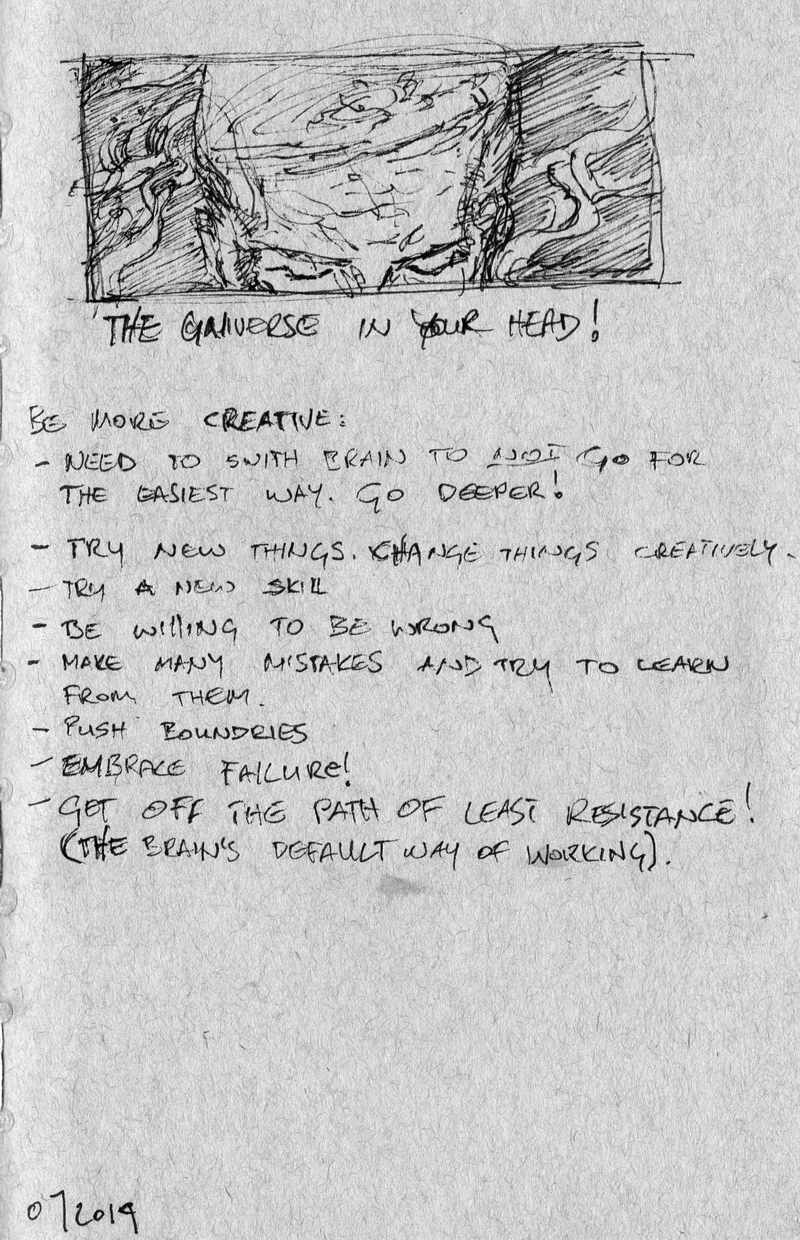 THE UNIVERSE IN YOUR HEAD!
BE MORE CREATIVE:
- NEED TO SWITH BRAIN TO NOT GO FOR
THE EASIEST WAY. GO DEEPER!
- TRY NEW THINGS. CHANGE THINGS CREATIVELY.
- TRY A NEW SKILL
- BE WILLING TO BE WRONG
- MAKE MANY MISTAKES AND TRY TO LEARN
FROM THEM.
- PUSH BOUNDRIES
- EMBRACE FAILURE!
- GET OFF THE PATH OF LEAST RESISTANCE!
(THE BRAIN'S DEFAULT WAY OF WORKING).
072019